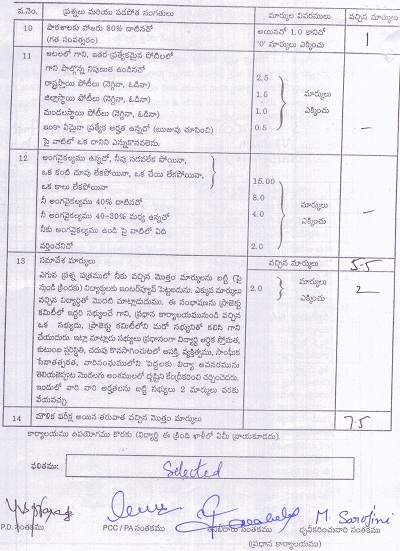 వ.నెం. ప్రశ్నలు మరియు పడపోత సంగతులు మార్కుల వివరములు వచ్చిన మార్కులు
10 పాఠశాలకు హాజరు 80% దాటినదో అయినదో 1.0 కానిదో 1
(గత సంవత్సరం) '0' మార్కులు ఎక్కించు
11 ఆటలలో గాని, ఇతర ప్రత్యేకమైన పోటీలలో
గాని పాల్గొన్న నిపుణుత ఉండినదో
రాష్ట్రస్థాయి పోటీలు (నెగ్గినా, ఓడినా) 2.5
జిల్లాస్థాయి పోటీలు (నెగ్గినా, ఓడినా) 1.5 మార్కులు
మండలస్థాయి పోటీలు (నెగ్గినా, ఓడినా) 1.0 ఎక్కించు
ఇంకా ఏమైనా ప్రత్యేక అర్హత ఉన్నదో (ఋజువు చూపించి) 0.5 –
పై వాటిలో ఒక దానిని ఎన్నుకొనవలెను.
12 అంగవైకల్యము ఉన్నదో, నీవు నడవలేక పోయినా,
ఒక కంటి చూపు లేకపోయినా, ఒక చేయి లేకపోయినా,
ఒక కాలు లేకపోయినా 15.00
నీ అంగవైకల్యము 40% దాటినదో 8.0 మార్కులు
నీ అంగవైకల్యము 40-30% మధ్య ఉన్నదో 4.0 ఎక్కించు –
నీకు అంగవైకల్యము ఉండి పై వాటిలో ఏది
వర్తించనిదో 2.0
13 సమావేశ మార్కులు వచ్చిన మార్కులు 5.5
ఎగువ ప్రశ్న పత్రములో నీకు వచ్చిన మొత్తం మార్కులను బట్టి (పై
నుండి క్రిందకు) విద్యార్థులకు ఇంటర్వ్యూకే పెట్టబడును. ఎక్కువ మార్కులు 2.0 మార్కులు 2
వచ్చిన విద్యార్థితో మొదటి మాట్లాడుదుము. ఈ సంభాషణను ప్రాజెక్టు ఎక్కించు
కమిటీలో ఇద్దరి సభ్యులచే గాని, ప్రధాన కార్యాలయమునుండి వచ్చిన
ఒక సభ్యుడు, ప్రాజెక్టు కమిటీలోని మరో సభ్యునితో కలిసి గాని
చేయుదురు. ఇట్లా మాట్లాడు సభ్యులు ప్రధానంగా విద్యార్థి ఆర్థిక స్తోమత,
కుటుంబ పరిస్థితి, చదువు కొనసాగించుటలో ఆసక్తి, వ్యక్తిత్వము, సాంఘిక
సేవాతత్పరత, వారిసంఘములోని పెద్దలకు విద్యా అవసరమును
తెలియజెప్పుట మొదలగు అంశములలో దృష్టిని కేంద్రీకరించి చర్చించెదరు.
ఇందులో వారి వారి అర్హతలను బట్టి సభ్యులు 2 మార్కులు వరకు
వేయవచ్చు.
14 మౌఖిక పరీక్ష అయిన తరువాత వచ్చిన మొత్తం మార్కులు 7.5
కార్యాలయము ఉపయోగము కొరకు (విద్యార్థి ఈ క్రింది ఖాళీలో ఏమీ వ్రాయకూడదు).
ఫలితము: Selected
M. Sarojini
P.D. సంతకము PCC / PA సంతకము సంతకము ధృవీకరించువారి సంతకము
(ప్రధాన కార్యాలయము)